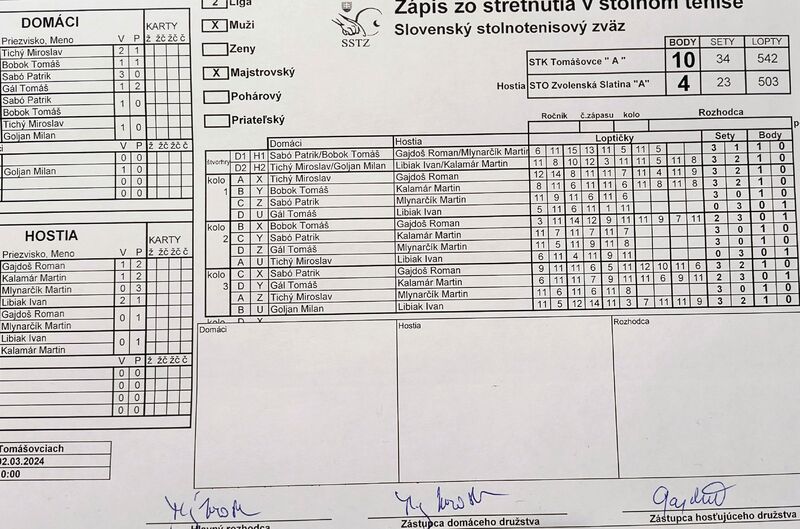 DOMÁCI
Priezvisko, Meno V P KARTY ž žč žč č
Tichý Miroslav 2 1
Bobok Tomáš 1 1
Sabó Patrik 3 0
Gál Tomáš 1 2
Sabó Patrik
Bobok Tomáš 1 0
Tichý Miroslav
Goljan Milan 1 0
V P ž žč žč č
0 0
Goljan Milan 1 0
0 0
0 0
HOSTIA
Priezvisko, Meno V P KARTY
Gajdoš Roman 1 2
Kalamár Martin 1 2
Mlynarčík Martin 0 3
Libiak Ivan 2 1
Gajdoš Roman
Mlynarčík Martin 0 1
Libiak Ivan
Kalamár Martin 0 1
V P ž žč žč č
0 0
0 0
0 0
0 0
Tomášovciach
02.03.2024
0:00
2 Liga
X Muži
Ženy
X Majstrovský
Pohárový
Priateľský
SSTZ
Zápis zo stretnutia v stolnom tenise
Slovenský stolnotenisový zväz
BODY SETY LOPTY
STK Tomášovce " A " 10 34 542
Hostia STO Zvolenská Slatina "A" 4 23 503
Ročník č.zápasu kolo Rozhodca
Domáci Hostia Loptičky Sety Body
štvorhry D1 H1 Sabó Patrik/Bobok Tomáš Gajdoš Roman/Mlynarčík Martin 6 11 15 13 11 5 11 5 3 1 1 0
D2 H2 Tichý Miroslav/Goljan Milan Libiak Ivan/Kalamár Martin 11 8 10 12 3 11 11 5 11 8 3 2 1 0
kolo 1 A X Tichý Miroslav Gajdoš Roman 12 14 8 11 11 7 11 4 11 9 3 2 1 0
B Y Bobok Tomáš Kalamár Martin 8 11 6 11 11 6 11 8 11 8 3 2 1 0
C Z Sabó Patrik Mlynarčík Martin 11 9 11 6 11 6 3 0 1 0
D U Gál Tomáš Libiak Ivan 5 11 6 11 1 11 0 3 0 1
kolo 2 B X Bobok Tomáš Gajdoš Roman 3 11 14 12 9 11 11 9 7 11 2 3 0 1
C Y Sabó Patrik Kalamár Martin 11 7 11 7 11 7 3 0 1 0
D Z Gál Tomáš Mlynarčík Martin 11 5 11 9 11 8 3 0 1 0
A U Tichý Miroslav Libiak Ivan 6 11 4 11 9 11 0 3 0 1
kolo 3 C X Sabó Patrik Gajdoš Roman 9 11 11 6 5 11 12 10 11 6 3 2 1 0
D Y Gál Tomáš Kalamár Martin 11 6 11 7 9 11 6 9 11 2 3 0 1
A Z Tichý Miroslav Mlynarčík Martin 11 6 11 6 11 8 3 0 1 0
B U Goljan Milan Libiak Ivan 11 5 12 14 11 3 7 11 11 9 3 2 1 0
kolo D X
Domáci Hostia Rozhodca
Hlavný rozhodca
Zástupca domáceho družstva
Gajdoš
Zástupca hosťujúceho družstva